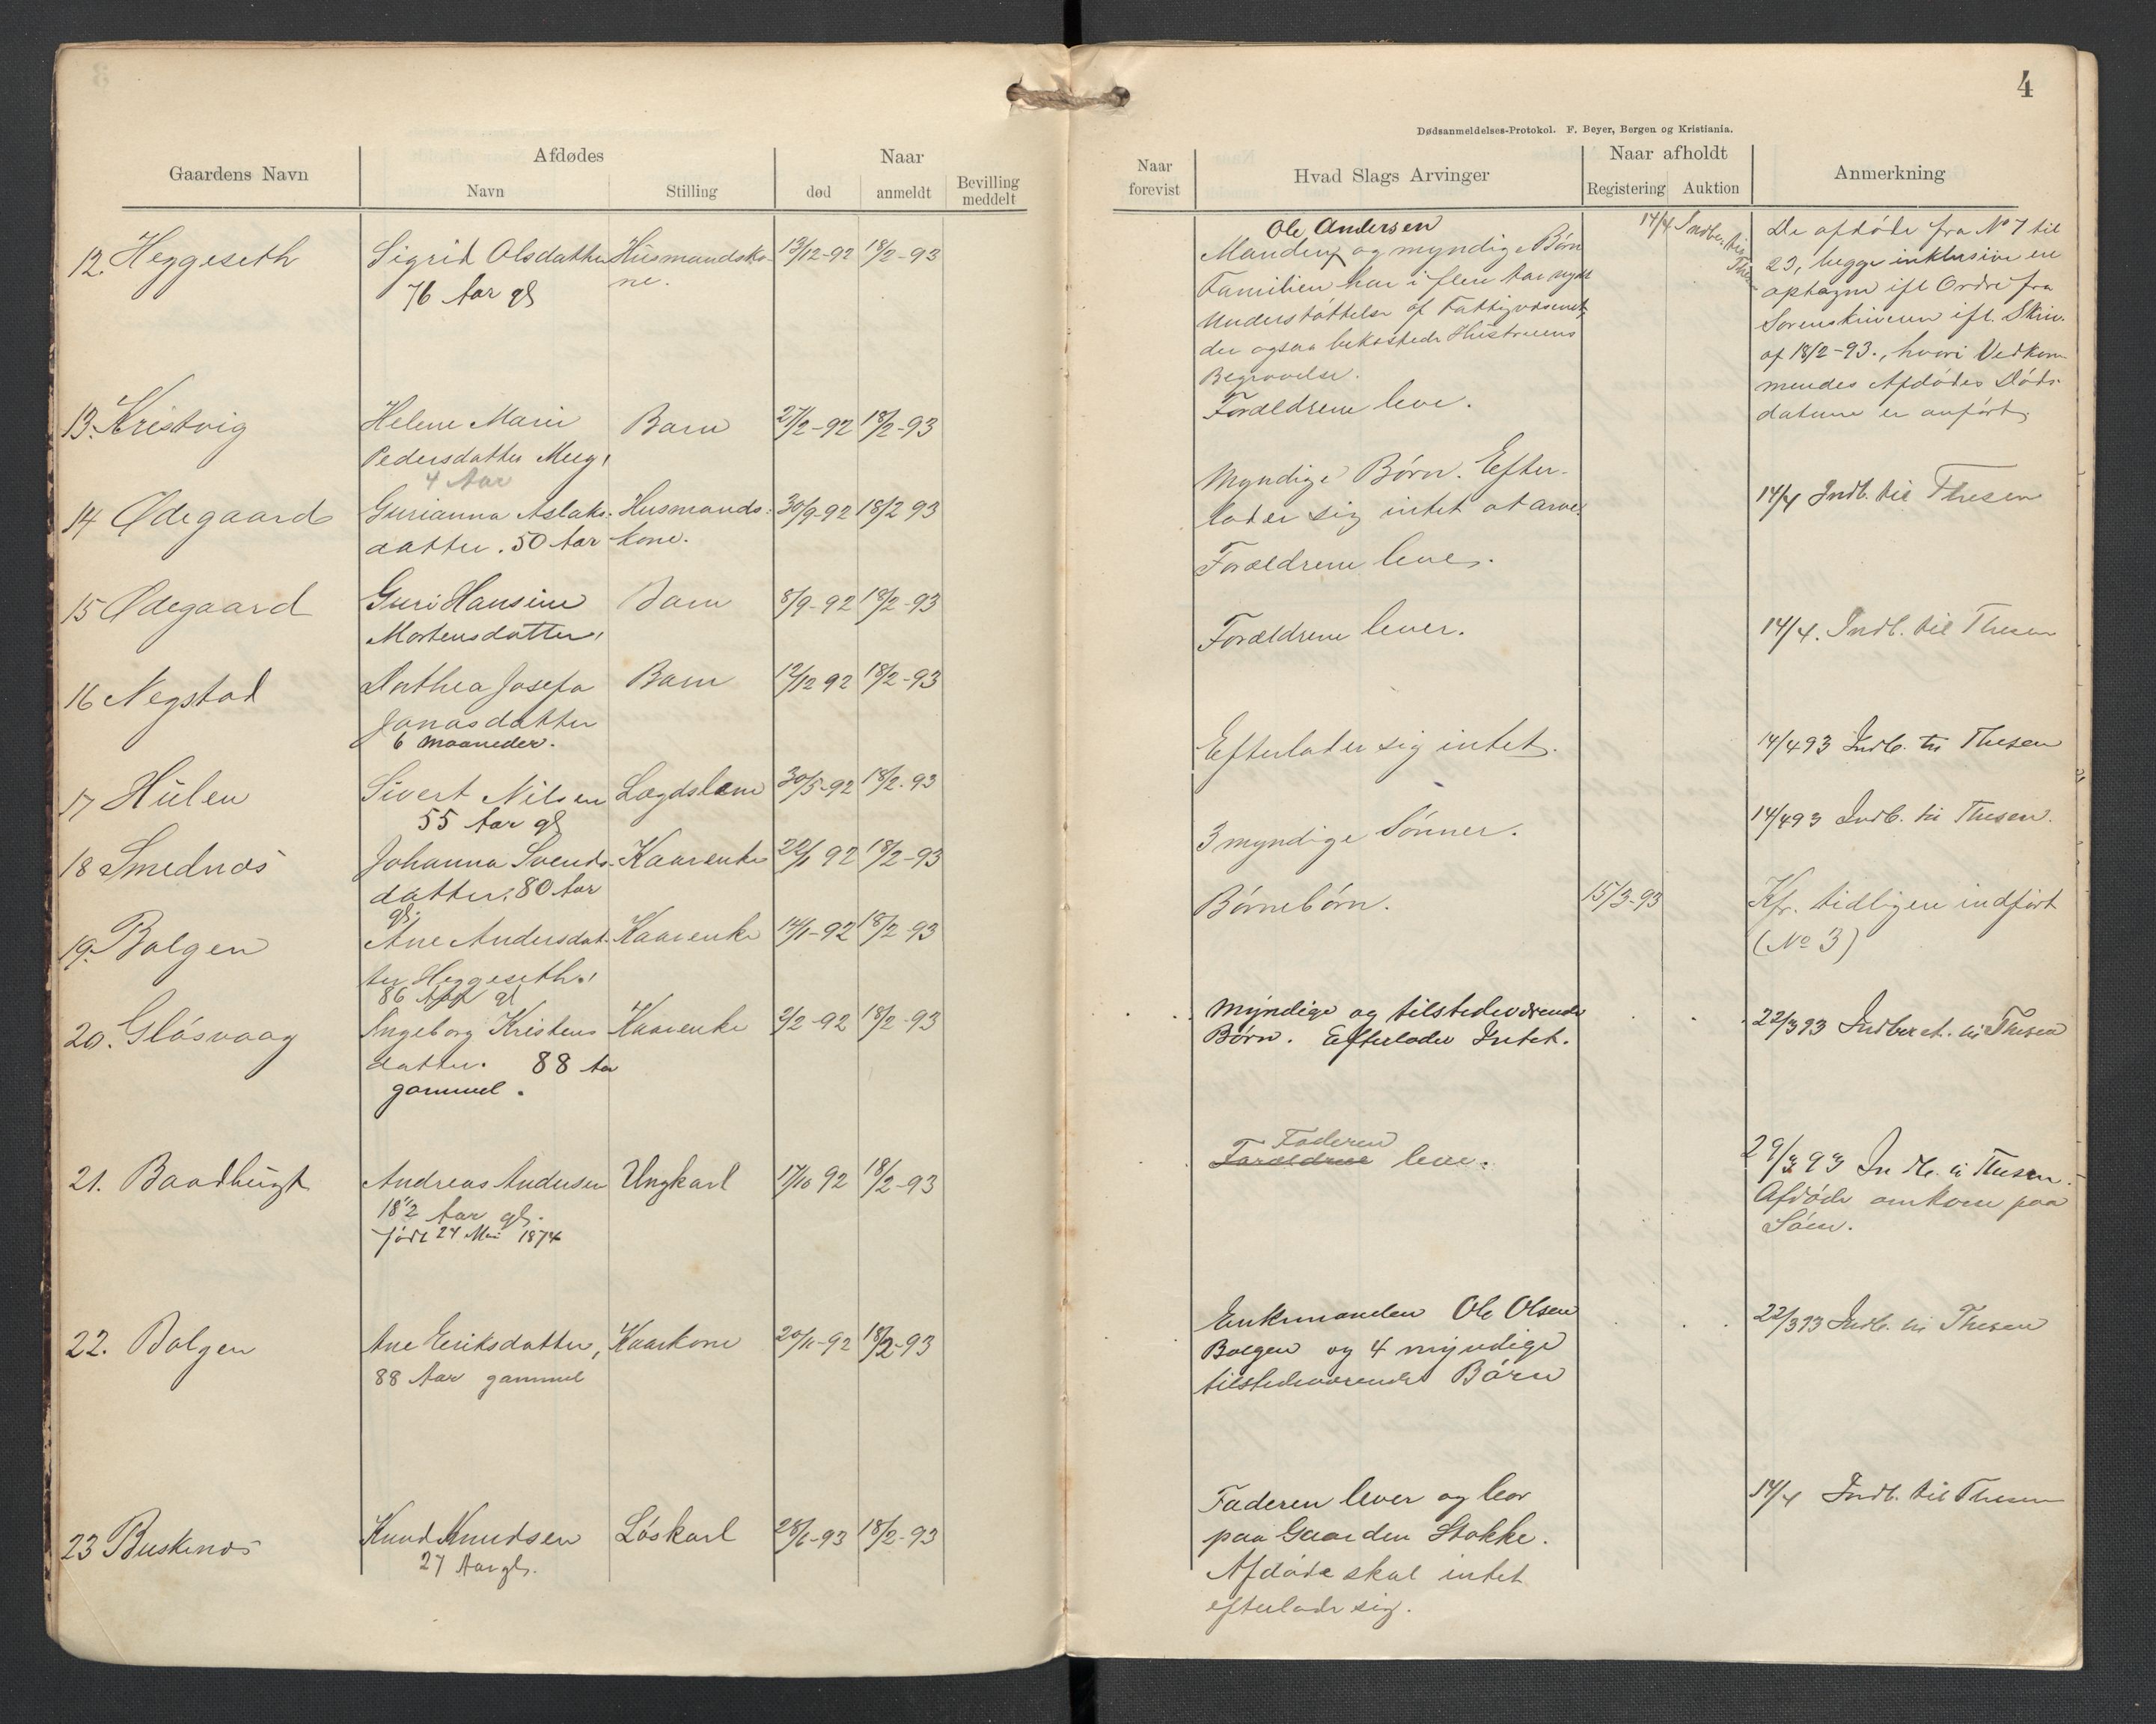 4
Dødsanmeldelses-Protokol. F. Beyer, Bergen og Kristiania.
Gaardens Navn
Afdødes
Navn
Stilling
Naar
død
anmeldt
Bevilling meddelt
Naar forevist
Hvad Slags Arvinger
Naar afholdt
Registering
Auktion
Anmerkning
12. Heggeseth
Sigrid Olsdatter
76 Aar gl
Husmandsko-
ne.
13/12-92
18/2-93
Ole Andersen
Manden og myndige Børn
Familien har i flere Aar nydt
Understøttelse af Fattigvæsenet,
der ogsaa bekostede Hustruens
Begravelse.
14/4 Indber. til
Thesen
De afdøde fra No 7 til
23, begge inklusive er
optagne ifl Ordre fra
Sorenskriveren ifl. Skriv.
af 18/2-93., hvori Vedkom-
mendes Afdødes Døds-
datum er anført.
13. Kristvig
Helene Marie
Pedersdatter
4 Aar
Barn
27/2-92
18/2-93
Forældrene leve.
14 Ødegaard
Gurianna Aslaks-
datter. 50 Aar
Husmands-
kone.
30/9-92
18/2 93
Myndige Børn. Efter-
lader sig intet at arve.
14/4 Indb. til Thesen
15 Ødegaard
Guri Hansine
Mortensdatter
Barn
8/9-92
18/2-93
Forældrene lever.
14/4. Indb. til Thesen
16 Negstad
Dorthea Josefa
Jonasdatter
6 Maaneder.
Barn
12/12 92
18/2-93
Forældrene lever.
14/4 93 Indb. til Thesen
17 Hulen
Sivert Nilsen
55 Aar gl
Lægdslem
30/5-92
18/2-93
Efterlader sig intet.
14/4 93 Indb. til Thesen.
18 Smednæs
Johanna Svends-
datter. 80 Aar
gl.
Kaarenke
22/1 92
18/2-93
3 myndige Sønner.
19. Bolgen
Ane Andersdat-
ter Heggeseth.
86 Aar gl
Kaarenke
14/1-92
18/2-93
Børnebørn.
15/3-93
Kfr. tidligere indført
(No 3)
20. Gløsvaag
Ingeborg Kristens
datter. 88 Aar
gammel.
Kaarenke
2/2-92
18/2-93
Myndige og tilstedeværende
Børn. Efterlader Intet.
22/3 93 Indberet. til Thesen
21. Baadbugt
Andreas Andersen
18 1/2 Aar gl.
født 24 Mai 1874
Ungkarl
17/10 92
18/2-93
Faderen
Forældrene lever.
29/3 93 Indb. til Thesen.
Afdøde omkom paa
Søen.
22. Bolgen
Ane Eriksdatter,
88 Aar gammel
Kaarkone
20/11-92
18/2-93
Enkemanden Ole Olsen
Bolgen og 4 myndige
tilstedeværende Børn
22/3 93 Indb. til Thesen
23 Buskenæs
Knud Knudsen
27 Aar gl.
Løskarl
28/6-93
18/2-93
Faderen lever og bor
paa Gaarden Stokke.
Afdøde skal intet
efterlade sig.
14/4 Indb. til Thesen